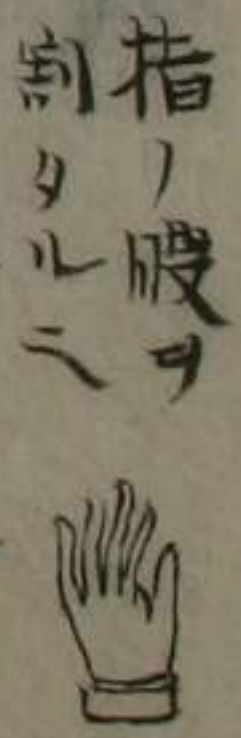 指ノ股ヲ
割タルニ